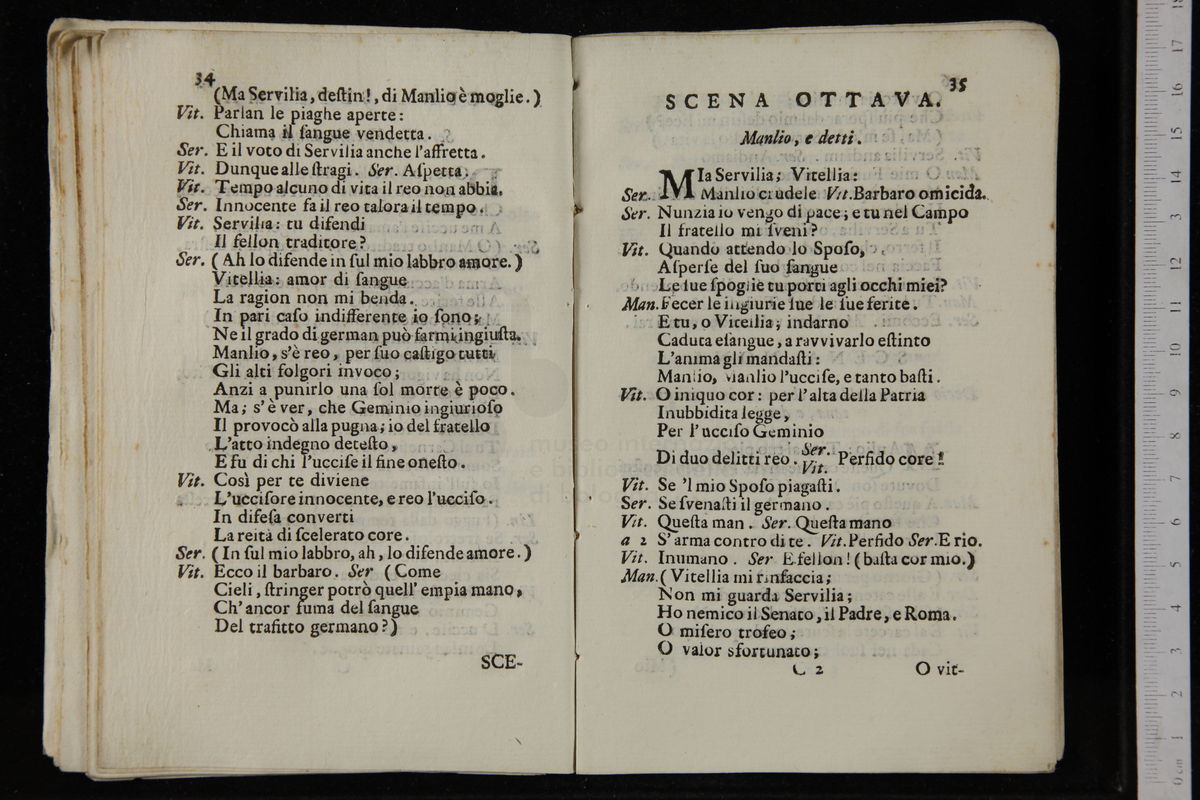 34
(Ma Servilia, deſtin!, di Manlio è moglie.)
Vit. Parlan le piaghe aperte:
Chiama il ſangue vendetta.
Ser. E il voto di Servilia anche l'affretta.
Vit. Dunque alle ſtragi. Ser. Aſpetta.
Vit. Tempo alcuno di vita il reo non abbia.
Ser. Innocente fa il reo talora il tempo.
Vit. Servilia: tu difendi
Il fellon traditore?
Ser. (Ah lo difende in ſul mio labbro amore.)
Vitellia: amor di ſangue
La ragion non mi benda.
In pari caſo indifferente io ſono;
Ne il grado di german può farmi ingiuſta.
Manlio, s'è reo, per ſuo caſtigo tutti
Gli alti folgori invoco;
Anzi a punirlo una ſol morte è poco.
Ma; s'è ver, che Geminio ingiurioſo
Il provocò alla pugna; io del fratello
L'atto indegno deteſto,
E fu di chi l'ucciſe il fine oneſto.
Vit. Così per te diviene
L'ucciſore innocente, e reo l'ucciſo.
In difeſa converti
La reità di ſcelerato core.
Ser. (In ſul mio labbro, ah, lo difende amore.)
Vit. Ecco il barbaro. Ser (Come
Cieli, ſtringer potrò quell' empia mano,
Ch' ancor fuma del ſangue
Del trafitto germano?)
SCE-
35
SCENA OTTAVA.
Manlio, e detti.
MIa Servilia; Vitellia:
Ser. Manlio crudele Vit. Barbaro omicida.
Ser. Nunzia io vengo di pace; e tu nel Campo
Il fratello mi ſveni?
Vit. Quando attendo lo Spoſo,
Aſperſe del ſuo ſangue
Le ſue ſpoglie tu porti agli occhi miei?
Man. Fecer le ingiurie ſue le ſue ferite.
E tu, o Vitellia; indarno
Caduta eſangue, a ravvivarlo eſtinto
L'anima gli mandaſti:
Manlio, Manlio l'ucciſe, e tanto baſti.
Vit. O iniquo cor: per l'alta della Patria
Inubbidita legge,
Per l'ucciſo Geminio
Di duo delitti reo. Ser. Vit. Perfido core!
Vit. Se 'l mio Spoſo piagaſti.
Ser. Se ſvenaſti il germano.
Vit. Queſta man. Ser. Queſta mano
a 2 S'arma contro di te. Vit. Perfido Ser. E rio.
Vit. Inumano. Ser E fellon! (baſta cor mio.)
Man. (Vitellia mi rinfaccia;
Non mi guarda Servilia;
Ho nemico il Senato, il Padre, e Roma.
O miſero trofeo;
O valor sfortunato;
C 2 O vit-